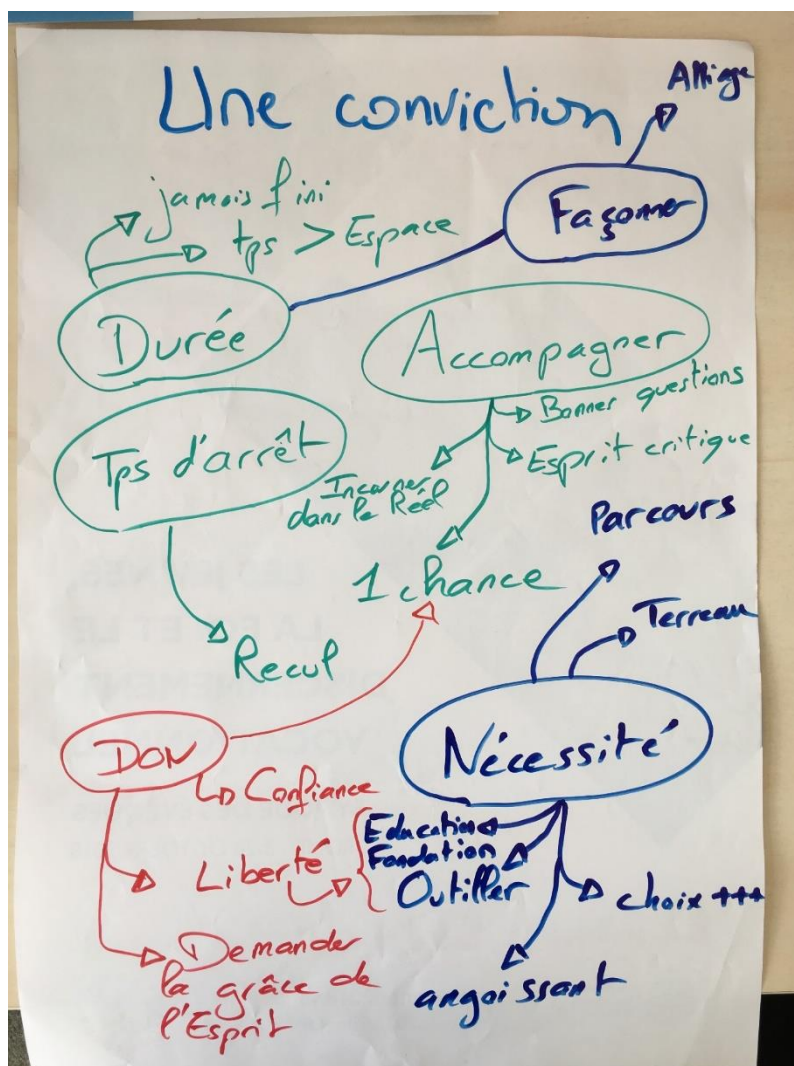 Une conviction
Alliage
Façonner
jamais fini
tps > Espace
Durée
Accompagner
Bonnes questions
Esprit critique
Incarner
dans le Réel
1 chance
Tps d'arrêt
Recul
Parcours
Terreau
Nécessité
DON
Confiance
Liberté
Education
Fondation
Outiller
choix +++
angoissant
Demander
la grâce de
l'Esprit